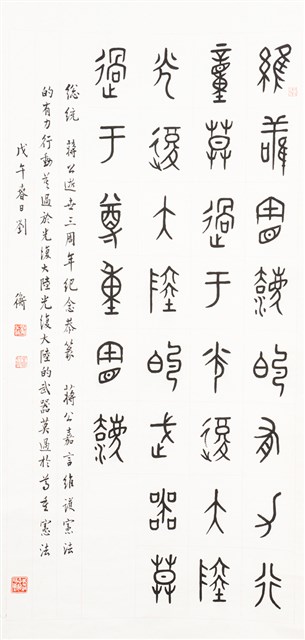 維護憲法的有力行
動莫過于光復大陸
光復大陸的武器莫
過于尊重憲法
總統 蔣公逝世三周年紀念恭篆 蔣公嘉言維護憲法
的有力行動莫過於光復大陸光復大陸的武器莫過於尊重憲法
戊午春日劉